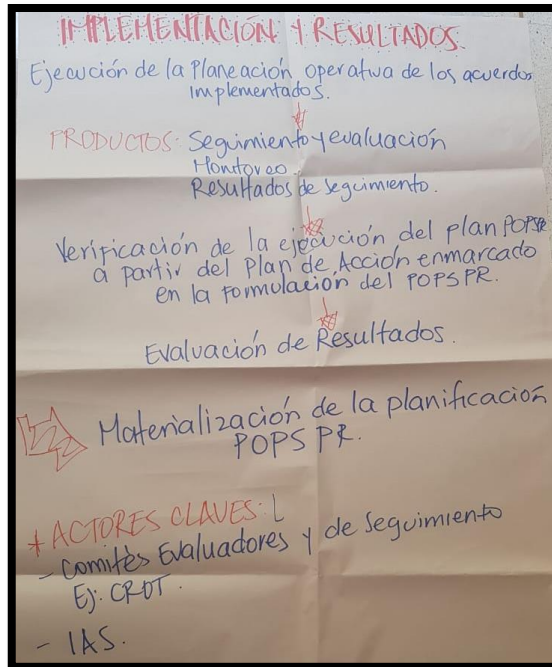 IMPLEMENTACIÓN Y RESULTADOS.
Ejecución de la Planeación operativa de los acuerdos
implementados.
PRODUCTOS: Seguimiento y evaluación
Monitoreo.
Resultados de seguimiento.
Verificación de la ejecución del plan POPSPR
a partir del Plan de Acción enmarcado
en la formulación del POPSPR.
Evaluación de Resultados.
Materialización de la planificación
POPS PR.
* ACTORES CLAVES:
- Comités Evaluadores y de seguimiento
Ej: CROT.
- IAS.